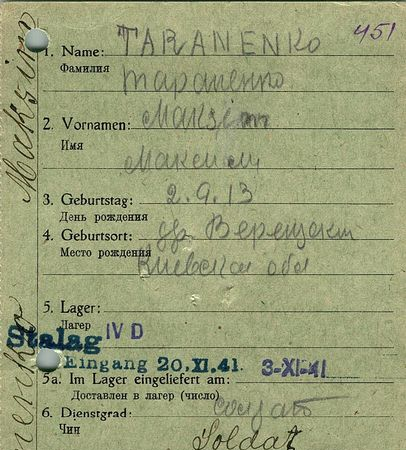 451
1. Name: TARANENKO
Фамилия Тараненко
2. Vornamen: Maksim
Имя Максим
3. Geburtstag: 2.9.13
День рождения
4. Geburtsort: др. Верещаки
Место рождения Киевская обл
5. Lager:
Лагер IV D
Stalag
Eingang 20. XI. 41. 3-XI-41
5a. Im Lager eingeliefert am:
Доставлен в лагер (число)
6. Dienstgrad: солдат
Чин Soldat
Maksim
nenko